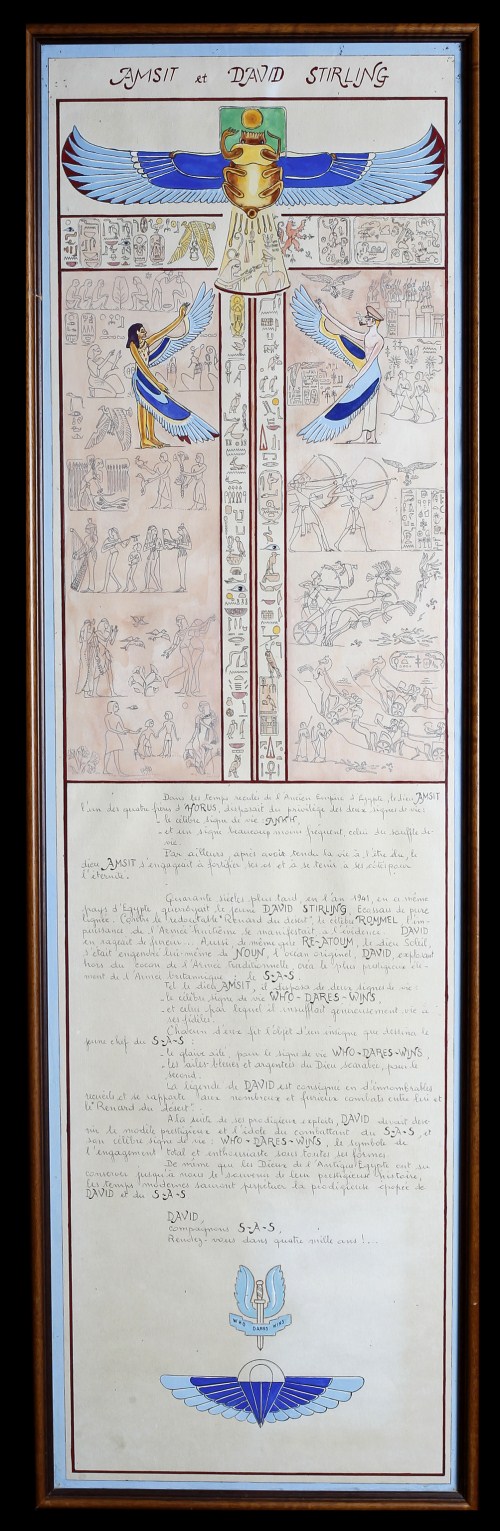 AMSIT et DAVID STIRLING
Dans les temps reculés de l'Ancien Empire d'Egypte, le dieu AMSIT
l'un des quatre fils d'HORUS, disposait du privilège des deux signes de vie:
- le célèbre signe de vie ANKH,
- et un signe beaucoup moins fréquent, celui du souffle de
vie.
Par ailleurs, après avoir tendu la vie à l'être élu, le
dieu AMSIT s'engageait à fortifier ses os et à se tenir à ses côtés pour
l'éternité.
Quarante siècles plus tard, en l'an 1941, en ce même
pays d'Egypte, guerroyait le jeune DAVID STIRLING, Ecossais de pure
lignée. Contre le redoutable "Renard du désert", le célèbre ROMMEL, l'im-
puissance de l'Armée huitième se manifestait à l'évidence. DAVID
en rageait de fureur... Aussi, de même que RE-ATOUM, le dieu Soleil,
s'était engendré lui-même de NOUN, l'océan originel, DAVID, explosant
hors du cocon de l'Armée traditionnelle, créa le plus prestigieux élé-
ment de l'Armée britannique : le S-A-S
Tel le dieu AMSIT, il disposa de deux signes de vie :
- le célèbre signe de vie WHO-DARES-WINS,
- et celui par lequel il insufflait généreusement vie à
ses fidèles.
Chacun d'eux fit l'objet d'un insigne que dessina le
jeune chef du S-A-S :
- le glaive ailé, pour le signe de vie WHO-DARES-WINS,
- les ailes bleues et argentées du Dieu scarabée, pour le
second.
La légende de DAVID est consignée en d'innombrables
recueils et se rapporte aux nombreux et furieux combats entre lui et
le "Renard du désert".
A la suite de ses prodigieux exploits, DAVID devait deve-
nir le modèle prestigieux et l'idole du combattant du S-A-S, et
son célèbre signe de vie : WHO-DARES-WINS, le symbole de
l'engagement total et enthousiaste sous toutes ses formes.
De même que les Dieux de l'Antique Egypte ont su
conserver jusqu'à nous le souvenir de leur prestigieuse histoire,
les temps modernes sauront perpétuer la prodigieuse épopée de
DAVID et du S-A-S
DAVID,
compagnons S-A-S,
Rendez-vous dans quatre mille ans !...
WHO DARES WINS